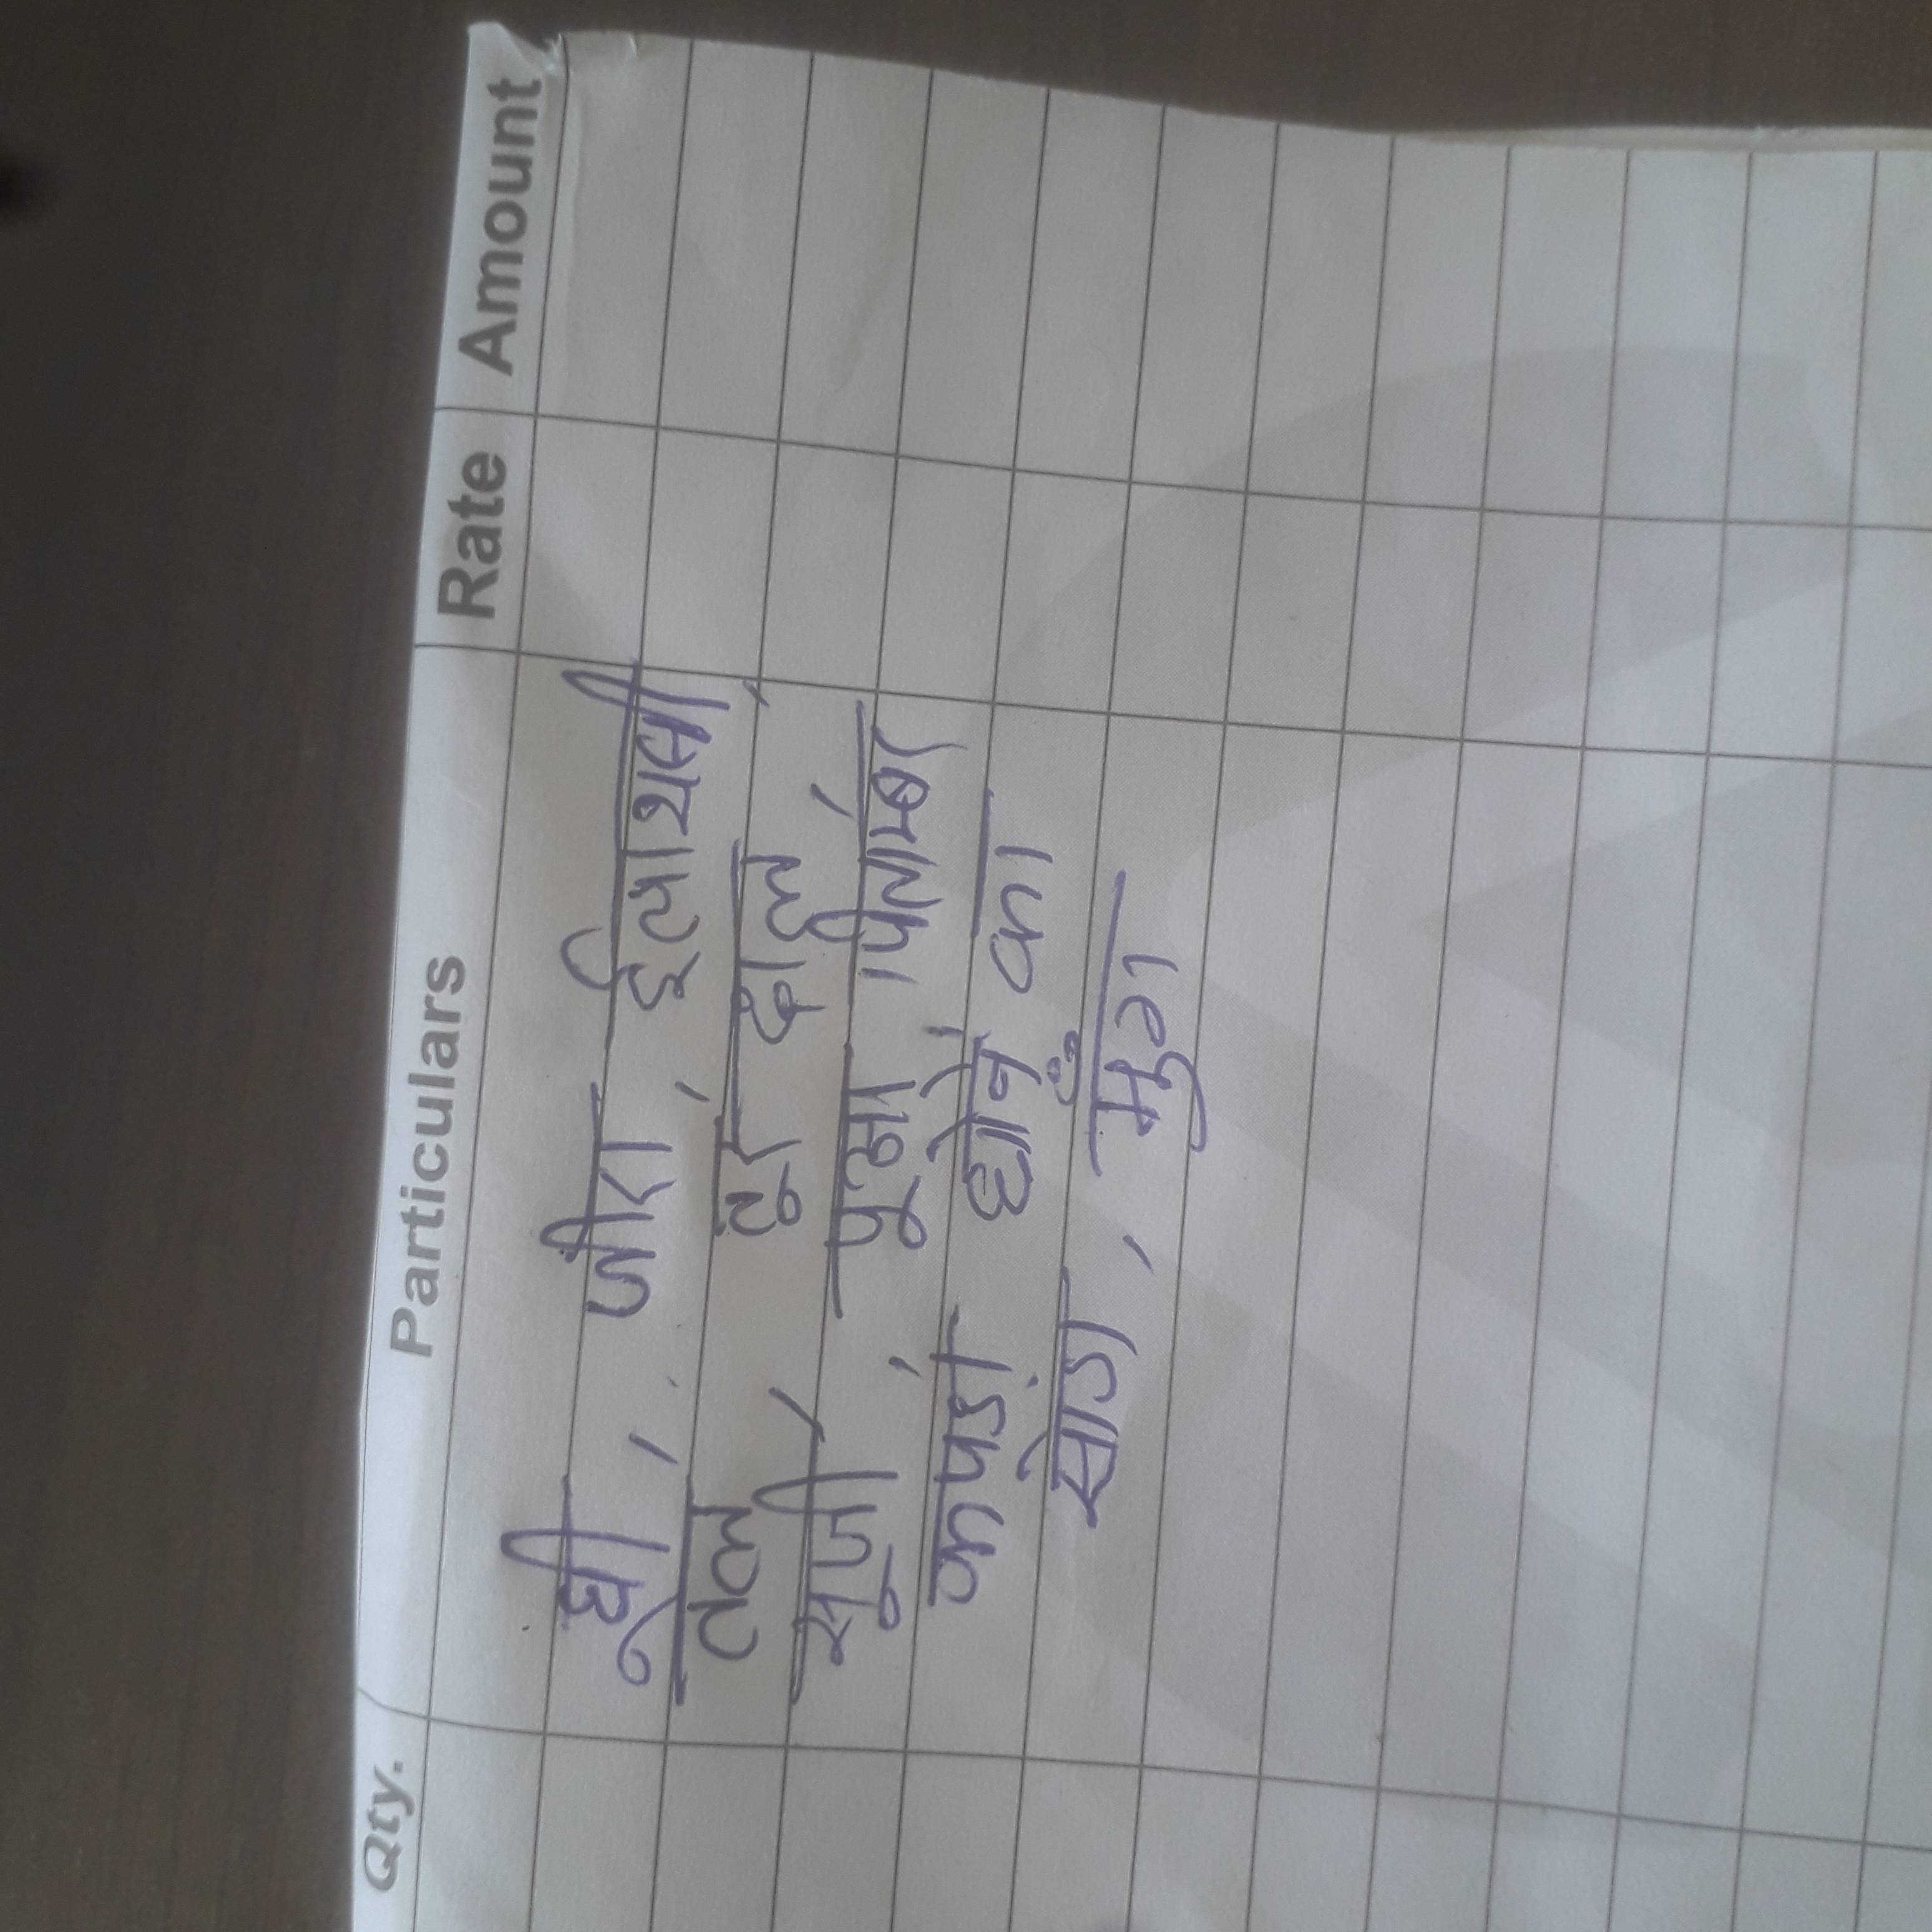 Qty. Particulars Rate Amount
घी, जीरा ईलायची
तेल, तूर दाल,
सूजी, पूजा पितांबर
कपडा धोने का
सोडा, मुँग